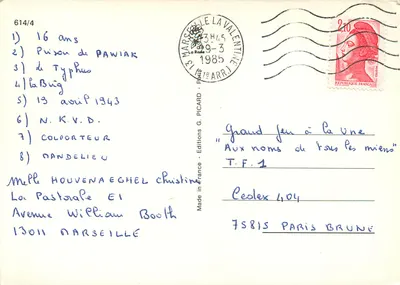 614/4
1) 16 ans
2) Prison de PAWIAK
3) le Typhus
4)
5) 19 avril 1943
6) N.K.V.D.
7) COLPORTEUR
8) MANDELIEU
Melle HOUVENAEGHEL Christine
La Pastorale E1
Avenue William Booth
13011 MARSEILLE
Made in France - Editions G. PICARD
13 MARSEILLE LA VALENTINE
13H45
9-3
1985
(11e ARRT)
2,10
"Grand jeu à la Une
"Aux noms de tous les miens"
T.F.1
Cedex 404
75815 PARIS BRUNE